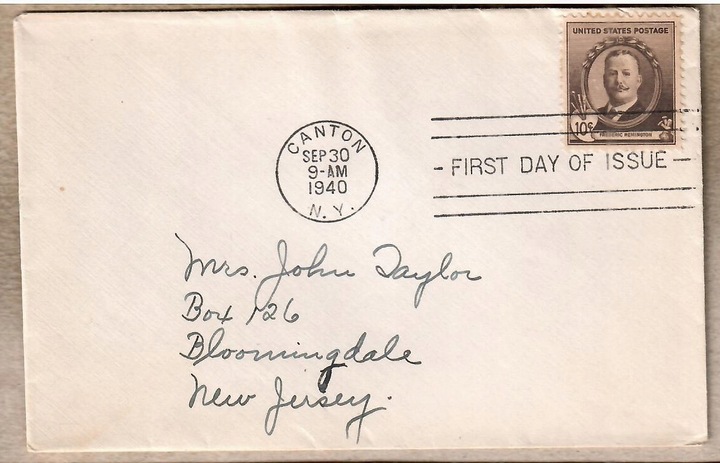 UNITED STATES POSTAGE
10¢
FREDERIC REMINGTON
CANTON
SEP 30
9-AM
1940
N.Y.
- FIRST DAY OF ISSUE -
Mrs. John Taylor
Box 126
Bloomingdale
New Jersey.